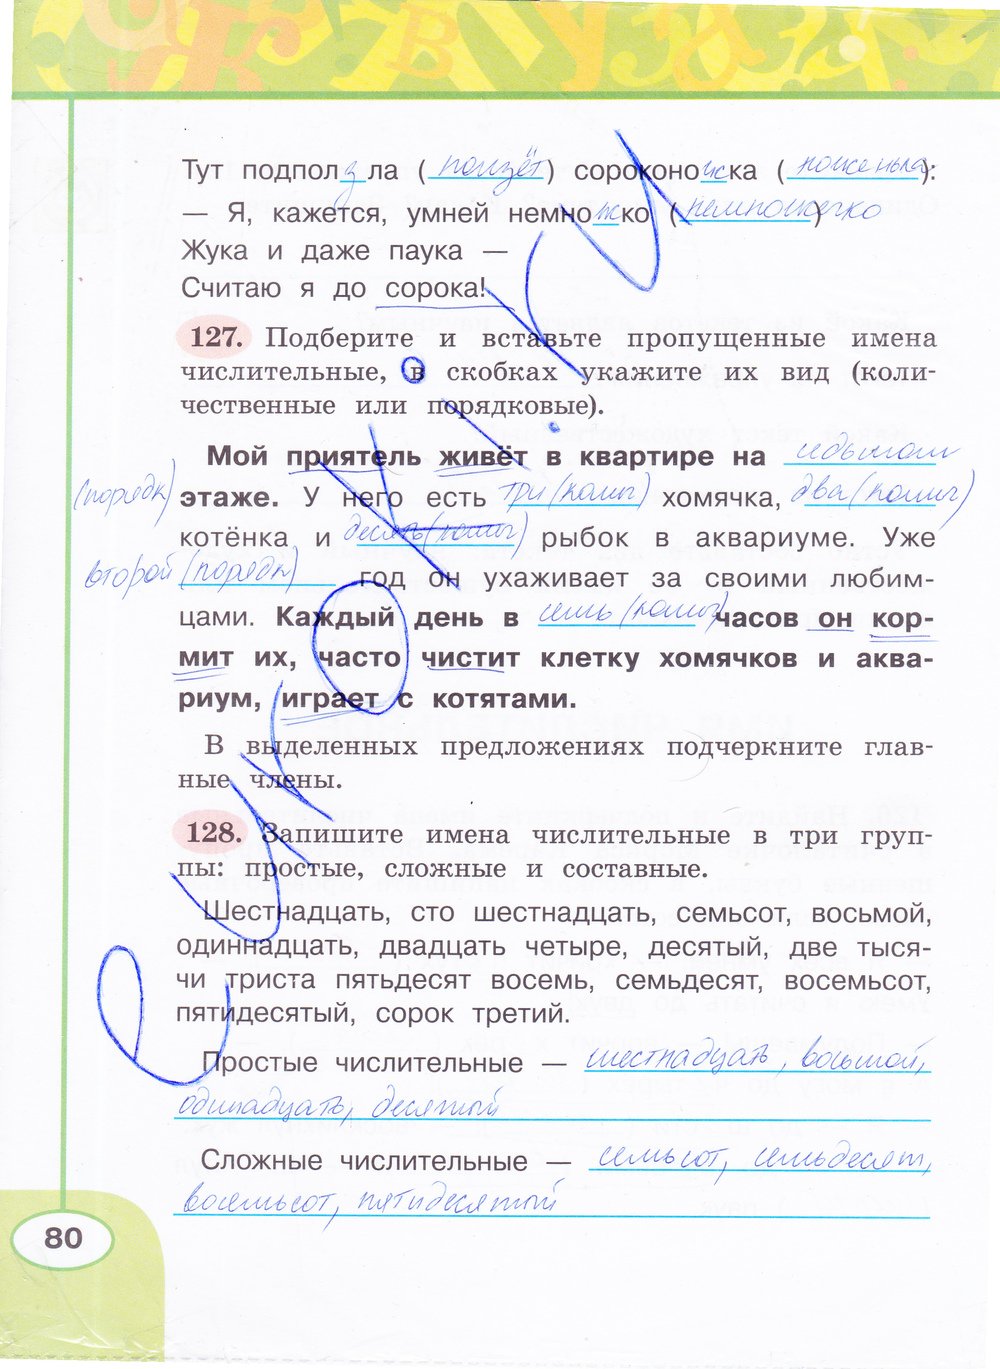 Тут подползла (ползёт) сороконожка (ноженька):
— Я, кажется, умней немножко (немножечко)
Жука и даже паука —
Считаю я до сорока!
127. Подберите и вставьте пропущенные имена
числительные, в скобках укажите их вид (коли-
чественные или порядковые).
Мой приятель живёт в квартире на седьмом
(порядк) этаже. У него есть три (колич) хомячка, два (колич)
котёнка и десять (колич) рыбок в аквариуме. Уже
второй (порядк) год он ухаживает за своими любим-
цами. Каждый день в семь (колич) часов он кор-
мит их, часто чистит клетку хомячков и аква-
риум, играет с котятами.
В выделенных предложениях подчеркните глав-
ные члены.
128. Запишите имена числительные в три груп-
пы: простые, сложные и составные.
Шестнадцать, сто шестнадцать, семьсот, восьмой,
одиннадцать, двадцать четыре, десятый, две тыся-
чи триста пятьдесят восемь, семьдесят, восемьсот,
пятидесятый, сорок третий.
Простые числительные — шестнадцать, восьмой,
одинадцать, десятый
Сложные числительные — семьсот, семьдесят,
восемьсот, пятидесятый
80
eurokі.ru